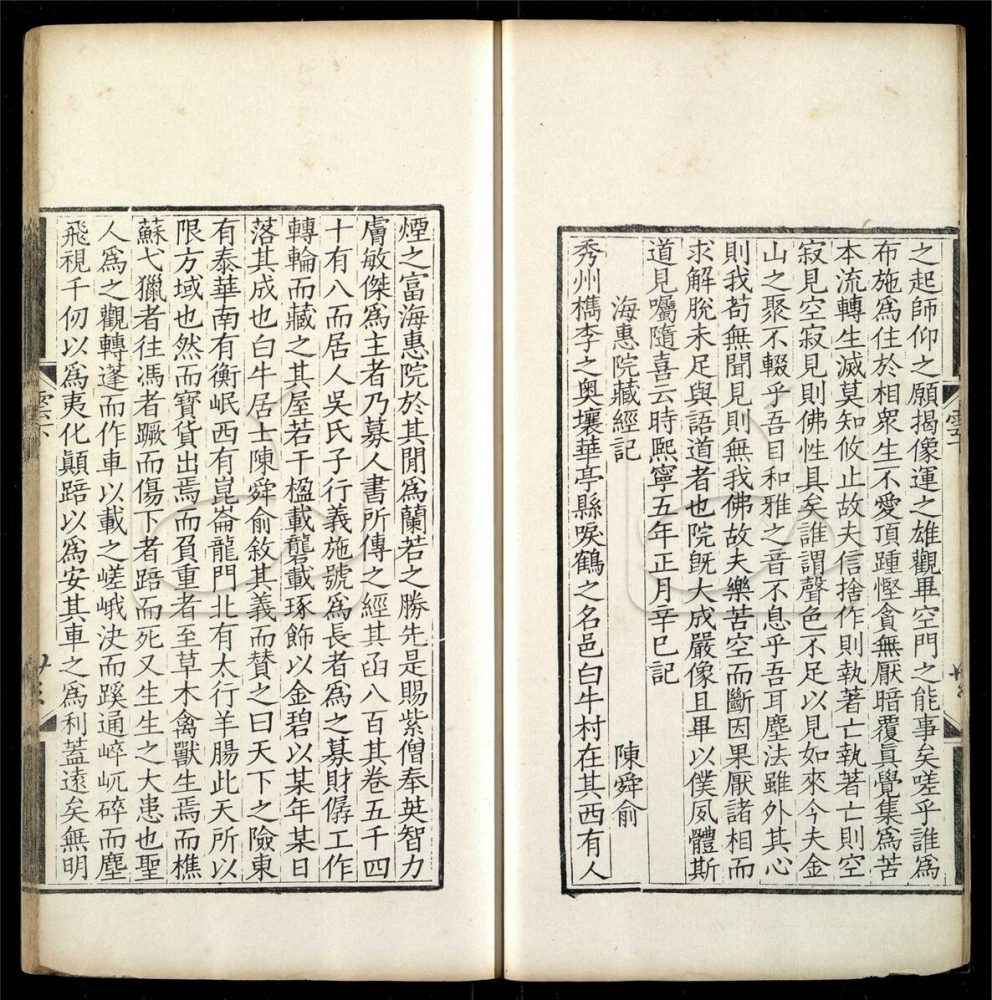 之起師仰之願揭像運之雄觀畢空門之能事矣嗟乎誰爲
布施爲住於相衆生不愛頂踵慳貪無厭暗覆真覺集爲苦
本流轉生滅莫知攸止故夫信捨作則執著亡執著亡則空
寂見空寂見則佛性具矣誰謂聲色不足以見如來今夫金
山之聚不輟乎吾目和雅之音不息乎吾耳塵法雖外其心
則我苟無聞見則無我佛故夫樂苦空而斷因果厭諸相而
求解脫未足與語道者也院旣大成嚴像且畢以僕夙體斯
道見囑隨喜云時熙寧五年正月辛巳記
海惠院藏經記
陳舜俞
秀州檇李之奧壤華亭縣唳鶴之名邑白牛村在其西有人
煙之富海惠院於其閒爲蘭若之勝先是賜紫僧奉英智力
膚敏傑爲主者乃募人書所傳之經其函八百其卷五千四
十有八而居人吳氏子行義施號爲長者為之募財僝工作
轉輪而藏之其屋若干楹載礱載琢飾以金碧以某年某日
落其成也白牛居士陳舜俞敘其義而贊之曰天下之險東
有泰華南有衡岷西有崑崙龍門北有太行羊腸此天所以
限方域也然而寶貨出焉而負重者至草木禽獸生焉而樵
蘇弋獵者往馮者蹶而傷下者踣而死又生生之大患也聖
人爲之觀轉蓬而作車以載之嵯峨決而蹊通崪屼碎而塵
飛視千仞以爲夷化顚踣以爲安其車之爲利蓋遠矣無明
雲下